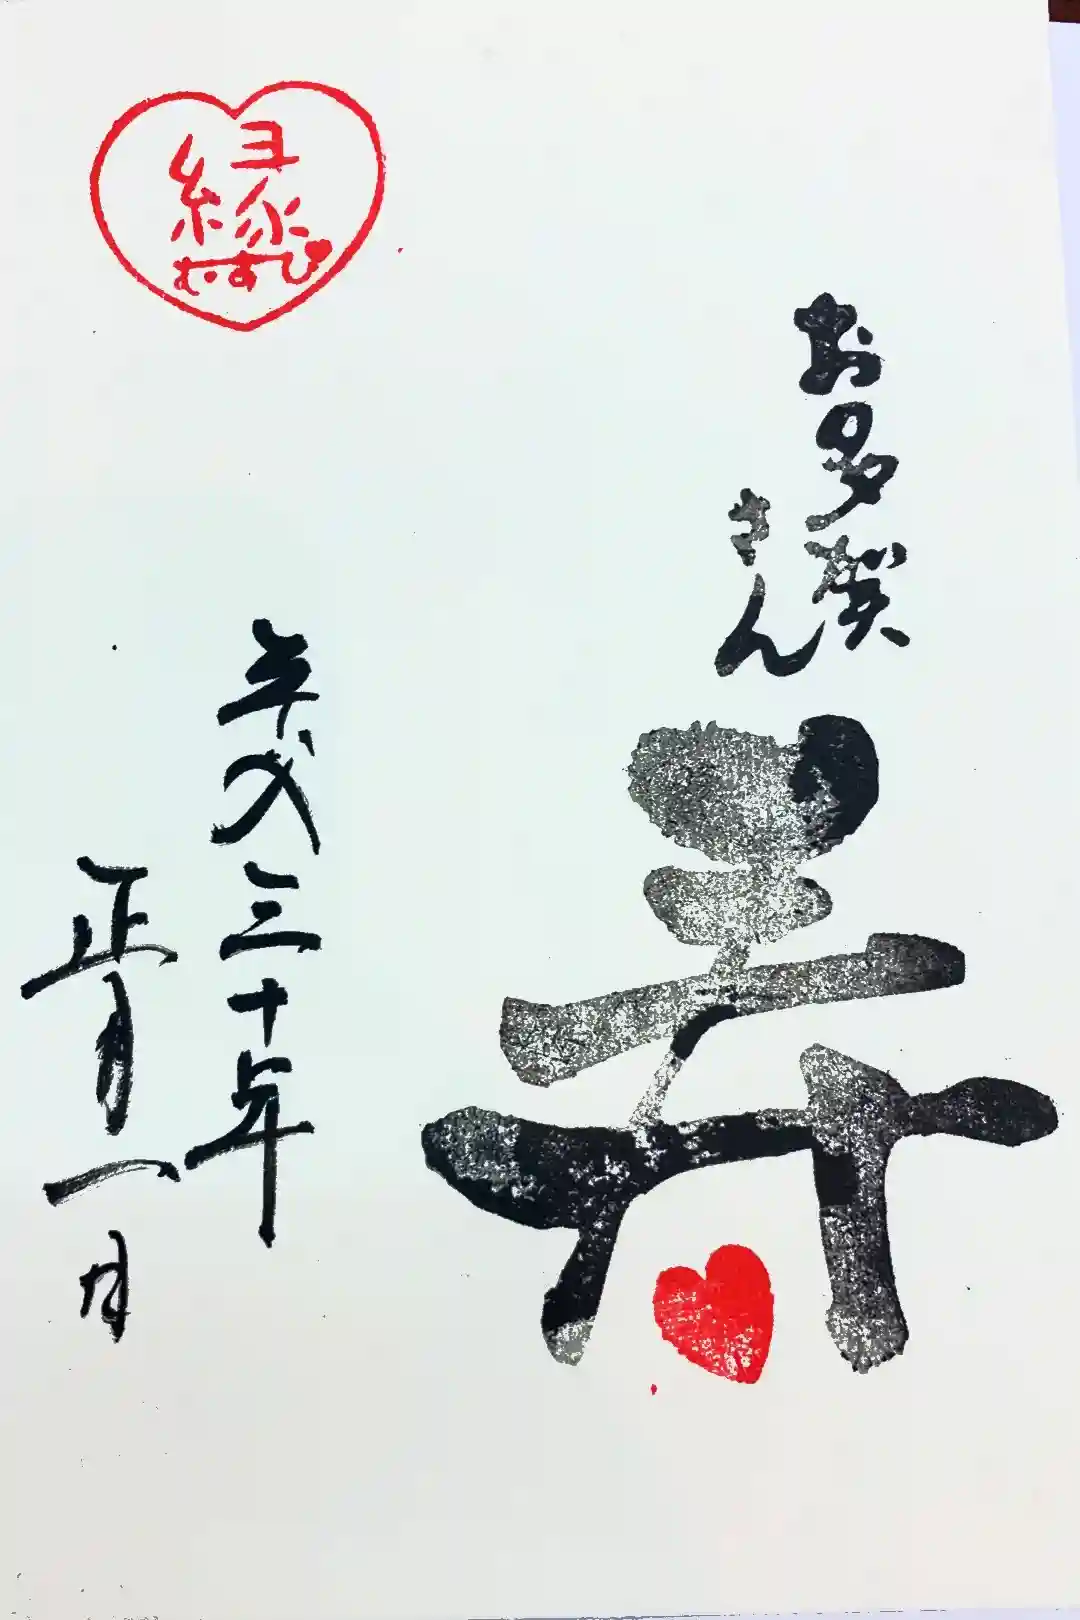 縁
むすび
お多賀
さん
寿
平成三十年
正月一日